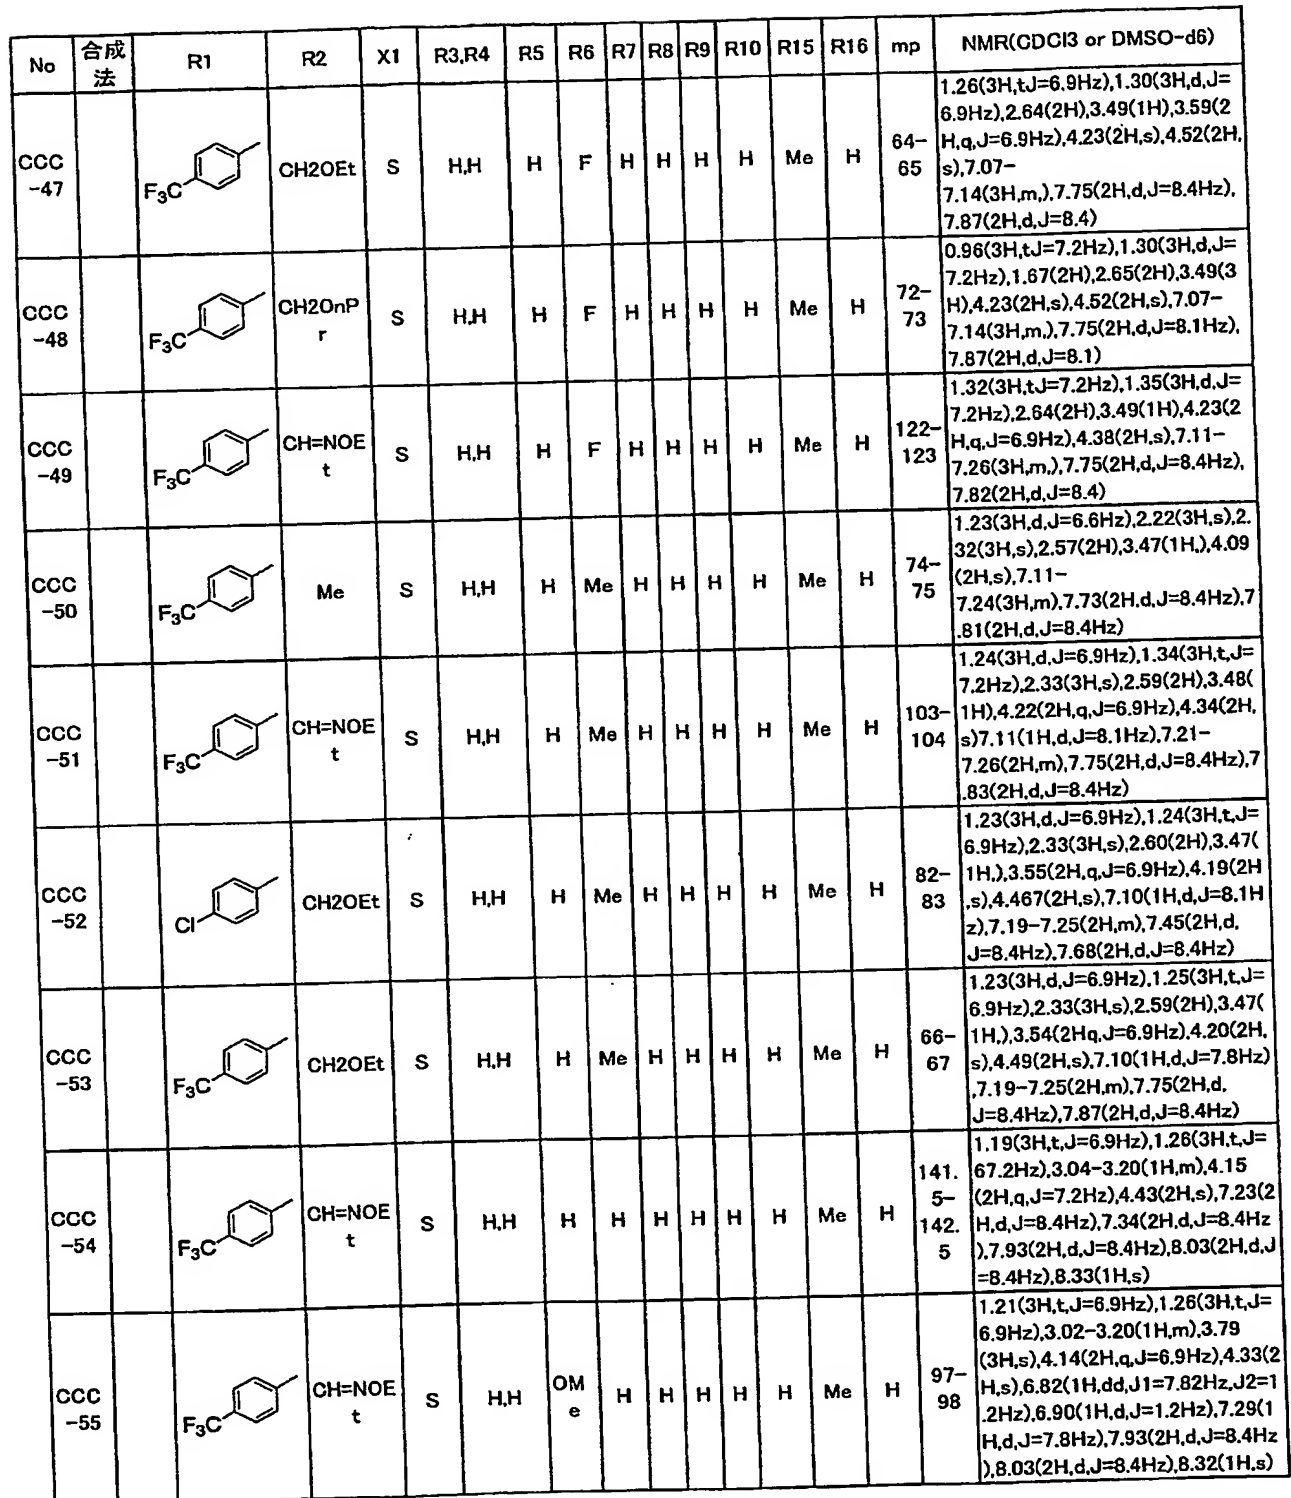 No 合成法 R1 R2 X1 R3,R4 R5 R6 R7 R8 R9 R10 R15 R16 mp NMR(CDCl3 or DMSO-d6)
CCC
-47
F3C
CH2OEt S H,H H F H H H H Me H
64-
65
1.26(3H,tJ=6.9Hz),1.30(3H,d,J=
6.9Hz),2.64(2H),3.49(1H),3.59(2
H,q,J=6.9Hz),4.23(2H,s),4.52(2H,
s),7.07-
7.14(3H,m,),7.75(2H,d,J=8.4Hz),
7.87(2H,d,J=8.4)
CCC
-48
F3C
CH2OnP
r
S H,H H F H H H H Me H
72-
73
0.96(3H,tJ=7.2Hz),1.30(3H,d,J=
7.2Hz),1.67(2H),2.65(2H),3.49(3
H),4.23(2H,s),4.52(2H,s),7.07-
7.14(3H,m,),7.75(2H,d,J=8.1Hz),
7.87(2H,d,J=8.1)
CCC
-49
F3C
CH=NOE
t
S H,H H F H H H H Me H
122-
123
1.32(3H,tJ=7.2Hz),1.35(3H,d,J=
7.2Hz),2.64(2H),3.49(1H),4.23(2
H,q,J=6.9Hz),4.38(2H,s),7.11-
7.26(3H,m,),7.75(2H,d,J=8.4Hz),
7.82(2H,d,J=8.4)
CCC
-50
F3C
Me S H,H H Me H H H H Me H
74-
75
1.23(3H,d,J=6.6Hz),2.22(3H,s),2.
32(3H,s),2.57(2H),3.47(1H,),4.09
(2H,s),7.11-
7.24(3H,m),7.73(2H,d,J=8.4Hz),7
.81(2H,d,J=8.4Hz)
CCC
-51
F3C
CH=NOE
t
S H,H H Me H H H H Me H
103-
104
1.24(3H,d,J=6.9Hz),1.34(3H,t,J=
7.2Hz),2.33(3H,s),2.59(2H),3.48(
1H),4.22(2H,q,J=6.9Hz),4.34(2H,
s)7.11(1H,d,J=8.1Hz),7.21-
7.26(2H,m),7.75(2H,d,J=8.4Hz),7
.83(2H,d,J=8.4Hz)
CCC
-52
Cl
CH2OEt S H,H H Me H H H H Me H
82-
83
1.23(3H,d,J=6.9Hz),1.24(3H,t,J=
6.9Hz),2.33(3H,s),2.60(2H),3.47(
1H,),3.55(2H,q,J=6.9Hz),4.19(2H
,s),4.467(2H,s),7.10(1H,d,J=8.1H
z),7.19-7.25(2H,m),7.45(2H,d,
J=8.4Hz),7.68(2H,d,J=8.4Hz)
CCC
-53
F3C
CH2OEt S H,H H Me H H H H Me H
66-
67
1.23(3H,d,J=6.9Hz),1.25(3H,t,J=
6.9Hz),2.33(3H,s),2.59(2H),3.47(
1H,),3.54(2Hq,J=6.9Hz),4.20(2H,
s),4.49(2H,s),7.10(1H,d,J=7.8Hz)
,7.19-7.25(2H,m),7.75(2H,d,
J=8.4Hz),7.87(2H,d,J=8.4Hz)
CCC
-54
F3C
CH=NOE
t
S H,H H H H H H H Me H
141.
5-
142.
5
1.19(3H,t,J=6.9Hz),1.26(3H,t,J=
67.2Hz),3.04-3.20(1H,m),4.15
(2H,q,J=7.2Hz),4.43(2H,s),7.23(2
H,d,J=8.4Hz),7.34(2H,d,J=8.4Hz
),7.93(2H,d,J=8.4Hz),8.03(2H,d,J
=8.4Hz),8.33(1H,s)
CCC
-55
F3C
CH=NOE
t
S H,H
OM
e
H H H H H Me H
97-
98
1.21(3H,t,J=6.9Hz),1.26(3H,t,J=
6.9Hz),3.02-3.20(1H,m),3.79
(3H,s),4.14(2H,q,J=6.9Hz),4.33(2
H,s),6.82(1H,dd,J1=7.82Hz,J2=1
.2Hz),6.90(1H,d,J=1.2Hz),7.29(1
H,d,J=7.8Hz),7.93(2H,d,J=8.4Hz
),8.03(2H,d,J=8.4Hz),8.32(1H,s)